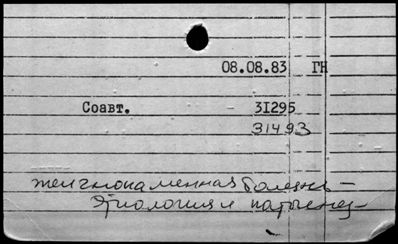 08.08.83 ГН
Соавт. 31295
31493
желчнокаменная болезнь –
Этиология и патогенез